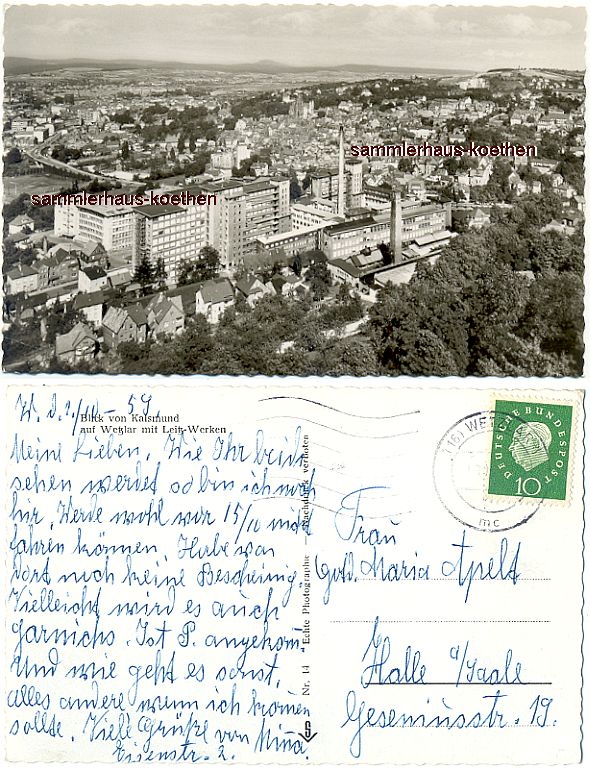 sammlerhaus-koethen
sammlerhaus-koethen
W. d. 1/10 - 59
Blick von Kalsmund
auf Wetzlar mit Leitz-Werken
Meine Lieben. Wie Ihr beide
sehen werdet so bin ich noch
hir, Werde wohl vor 15/10 nicht
fahren können. Habe von
dort noch keine Bescheinig.
Vielleicht wird es auch
garnichs. Ist P. angekom.
Und wie geht es sonst,
alles andere wenn ich komen
sollte. Viele Grüße von Mina.
Eisenstr. 2.
Nr. 14 Echte Photographie Nachdruck verboten
(16) WETZLAR
mc
DEUTSCHE BUNDESPOST
10
Frau
Maria Apelt
Halle a/Saale
Geseniusstr. 19.